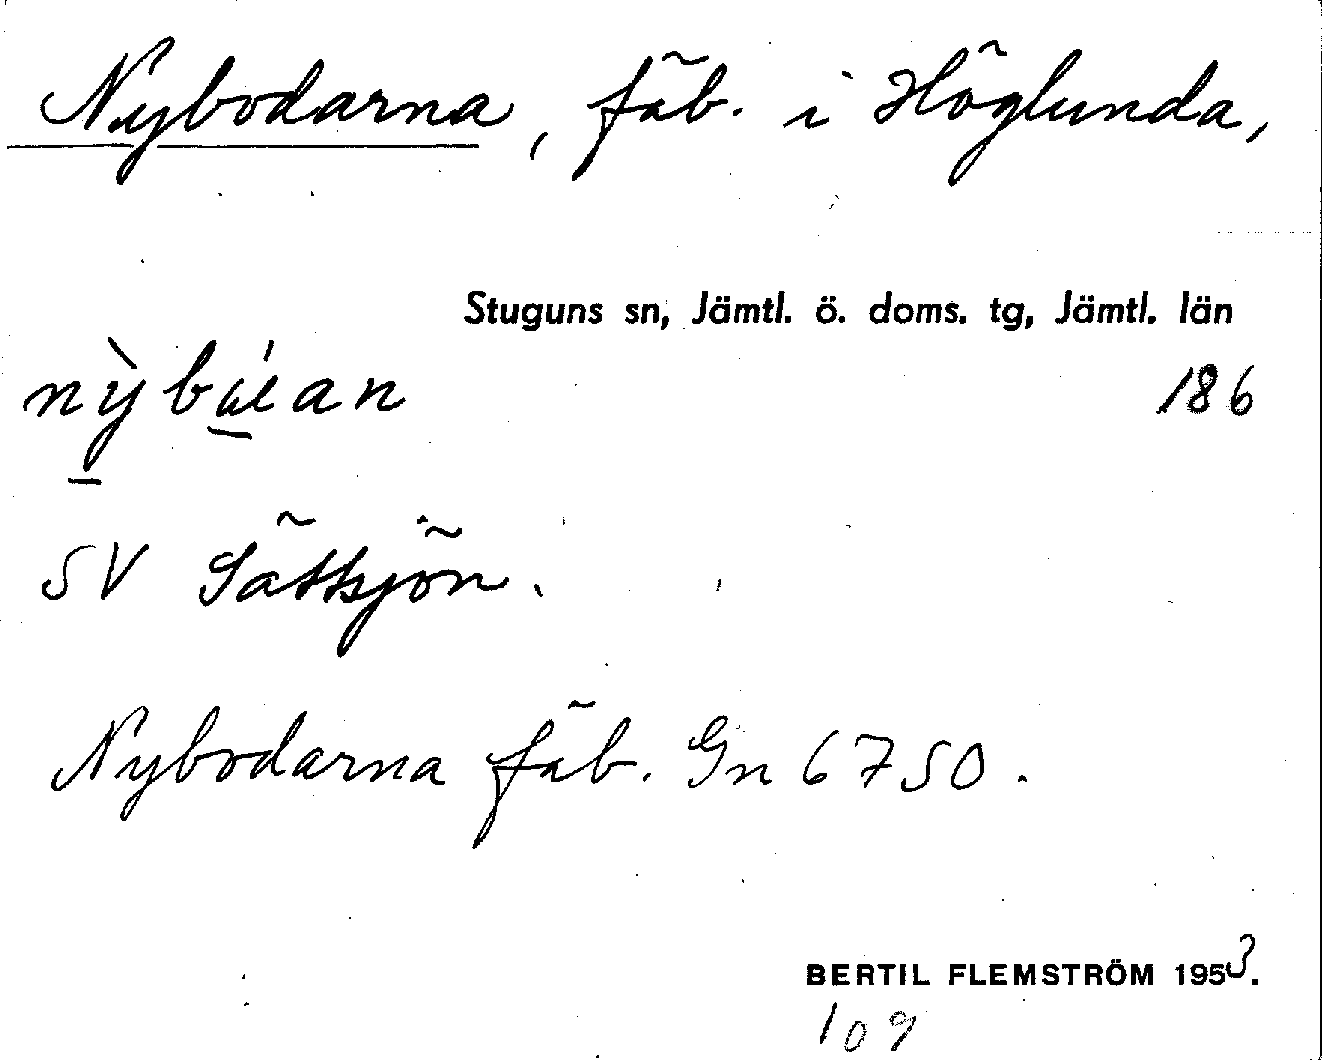 Nybodarna, fäb. i Höglunda,
Stuguns sn, Jämtl. ö. doms. tg, Jämtl. län
186
SV Sättsjön.
Nybodarna fäb. Gn 6750.
BERTIL FLEMSTRÖM 1953.
109